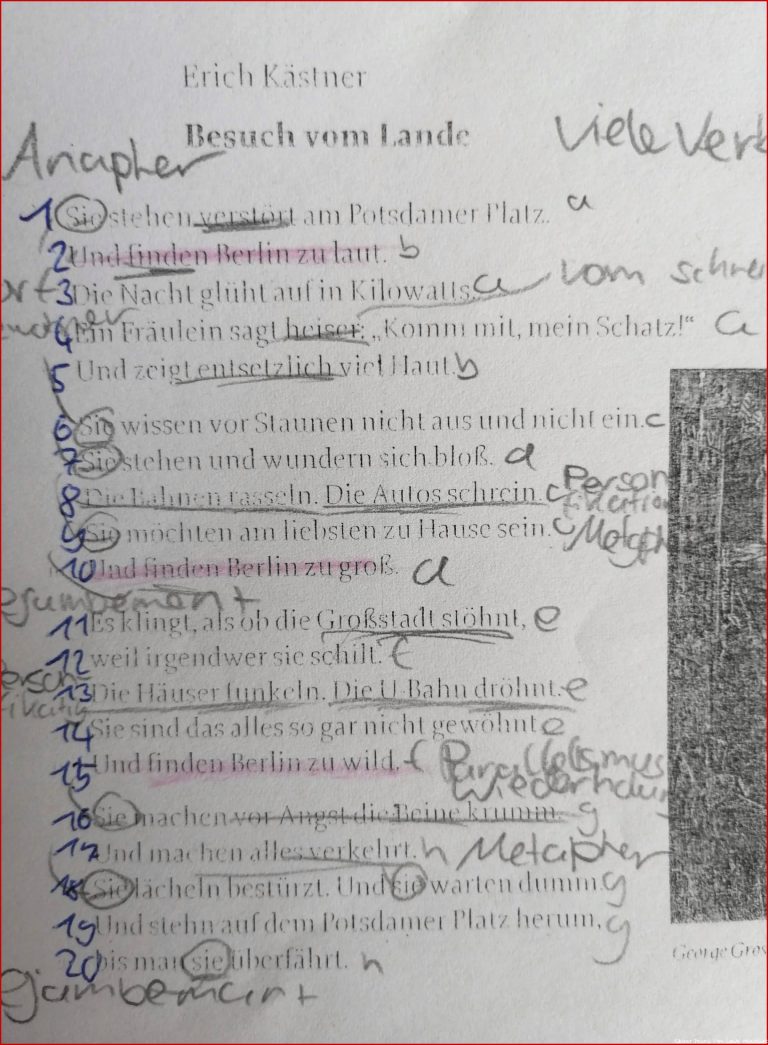 Erich Kästner
Besuch vom Lande
Viele Verb
Anapher
1 Sie stehen verstört am Potsdamer Platz. a
2 Und finden Berlin zu laut. b
3 Die Nacht glüht auf in Kilowatts. a vom
4 Ein Fräulein sagt heiser: „Komm mit, mein Schatz!“ a
5 Und zeigt entsetzlich viel Haut. b
6 Sie wissen vor Staunen nicht aus und nicht ein. c
7 Sie stehen und wundern sich bloß. d
8 Die Bahnen rasseln. Die Autos schrein. c Person
fikation
9 Sie möchten am liebsten zu Hause sein. c Metaph
10 Und finden Berlin zu groß. d
ejambemont
11 Es klingt, als ob die Großstadt stöhnt, e
12 weil irgendwer sie schilt. f
13 Die Häuser funkeln. Die U-Bahn dröhnt. e
14 Sie sind das alles so gar nicht gewöhnt e
15 Und finden Berlin zu wild. f Parallelismus
16 Sie machen vor Angst die Beine krumm. g
17 Und machen alles verkehrt. h Metapher
18 Sie lächeln bestürzt. Und sie warten dumm. g
19 Und stehn auf dem Potsdamer Platz herum, g
20 bis man sie überfährt. h
George Gros
ejambemant